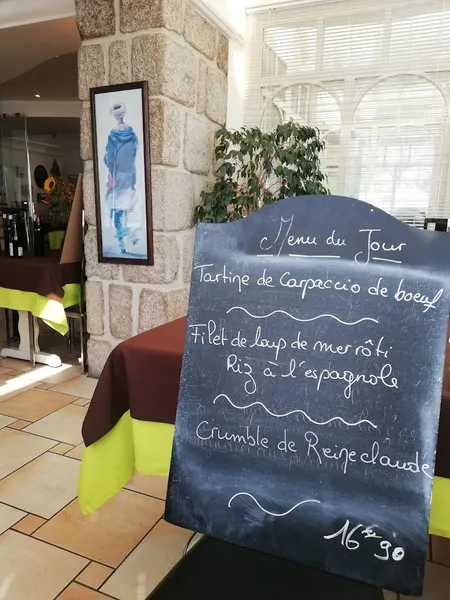 Menu du Jour
Tartine de Carpaccio de boeuf
Filet de loup de mer rôti
Riz à l'espagnole
Crumble de Reine claude
16 € 90